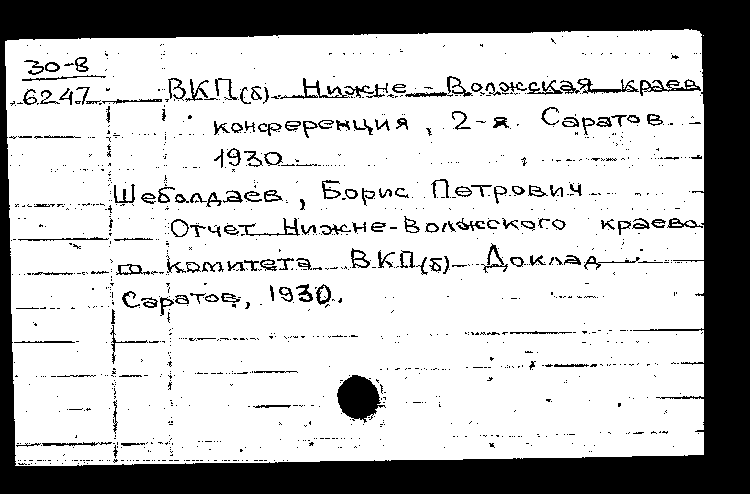 30-8
6247 ВКП(б) Нижне-Волжская краев
конференция, 2-я. Саратов.
1930.
Шеболдаев, Борис Петрович
Отчет Нижне-Волжского краево
го комитета ВКП(б) Доклад
Саратов, 1930.